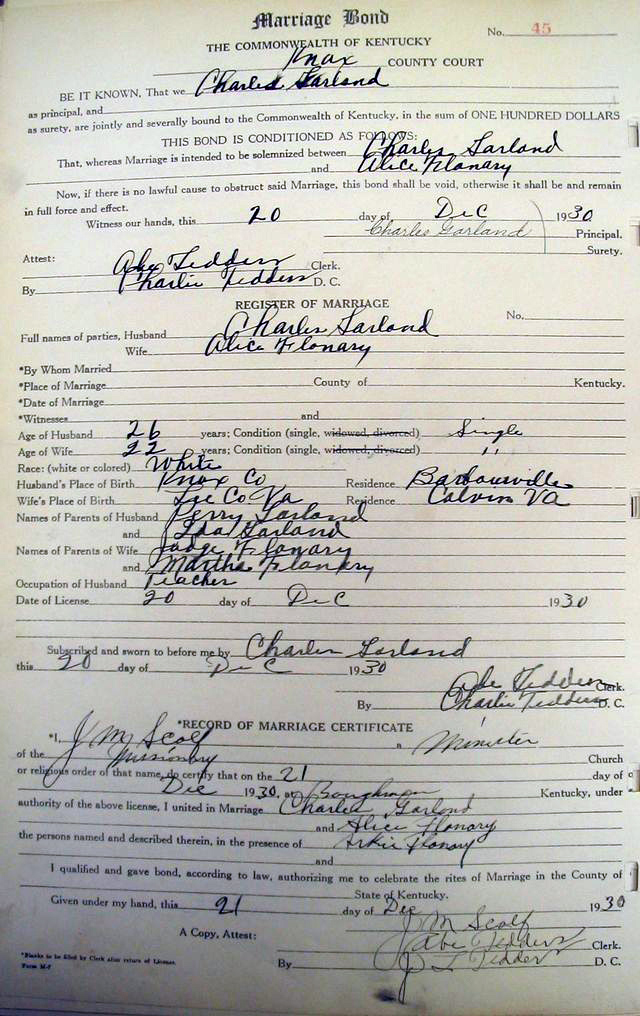 Marriage Bond
No. 45
THE COMMONWEALTH OF KENTUCKY
Knox COUNTY COURT
BE IT KNOWN, That we Charles Garland
as principal, and
as surety, are jointly and severally bound to the Commonwealth of Kentucky, in the sum of ONE HUNDRED DOLLARS
THIS BOND IS CONDITIONED AS FOLLOWS:
That, whereas Marriage is intended to be solemnized between Charles Garland
and Alice Flanary
Now, if there is no lawful cause to obstruct said Marriage, this bond shall be void, otherwise it shall be and remain
in full force and effect.
Witness our hands, this 20 day of Dec 1930
Charles Garland Principal.
Surety.
Attest:
Abe Tedders Clerk.
By Charlie Tedders D. C.
REGISTER OF MARRIAGE
No.
Full names of parties, Husband Charles Garland
Wife Alice Flanary
*By Whom Married
*Place of Marriage County of Kentucky.
*Date of Marriage
*Witnesses and
Age of Husband 26 years; Condition (single, widowed, divorced) Single
Age of Wife 22 years; Condition (single, widowed, divorced) "
Race: (white or colored) White
Husband's Place of Birth Knox Co Residence Barbourville
Wife's Place of Birth Lee Co Va Residence Calvin VA
Names of Parents of Husband Perry Garland
and Ida Garland
Names of Parents of Wife Judge Flanary
and Martha Flanary
Occupation of Husband Teacher
Date of License 20 day of Dec 1930
Subscribed and sworn to before me by Charles Garland
this 20 day of Dec 1930
Abe Tedders Clerk.
By Charlie Tedders D. C.
*RECORD OF MARRIAGE CERTIFICATE
*I, J M Scalf a Minister
of the Missionary Church
or religious order of that name, do certify that on the 21 day of
Dec 1930, at Baughman Kentucky, under
authority of the above license, I united in Marriage Charles Garland
and Alice Flanary
the persons named and described therein, in the presence of Arkie Flanary
and
I qualified and gave bond, according to law, authorizing me to celebrate the rites of Marriage in the County of
State of Kentucky.
Given under my hand, this 21 day of Dec 1930
J M Scalf
A Copy, Attest: Abe Tedders Clerk.
By J L Tedders D. C.
*Blanks to be filed by Clerk after return of License.
Form M-7